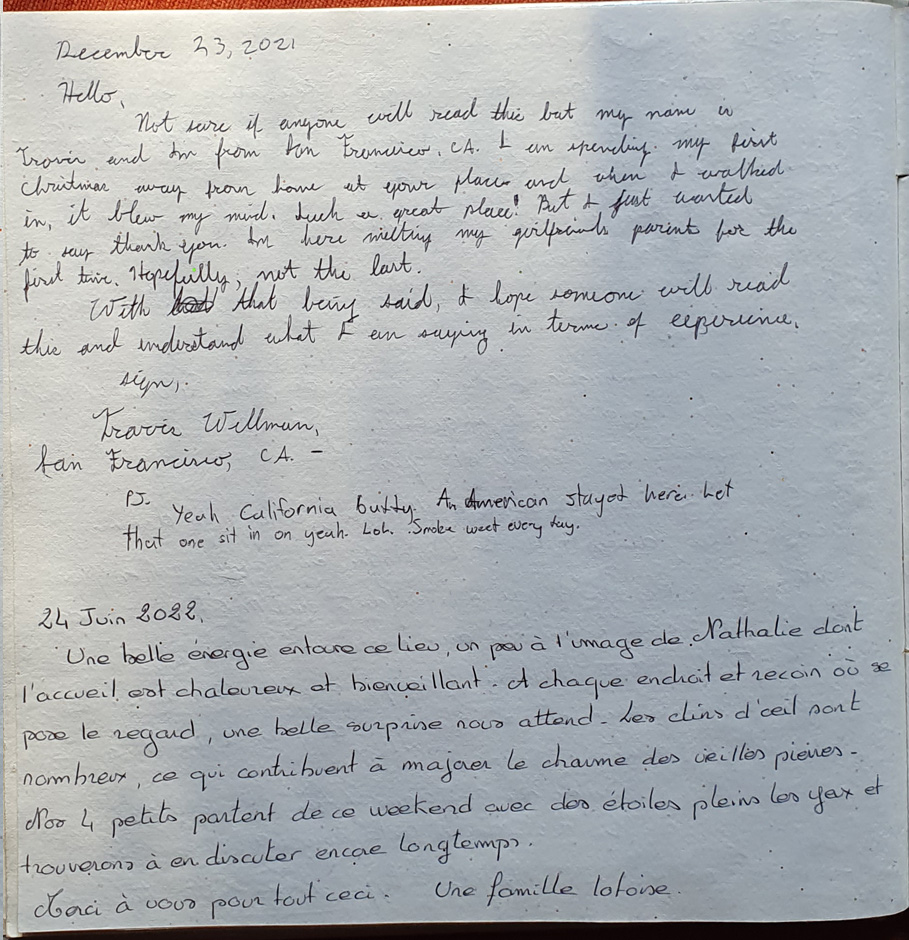 December 23, 2021
Hello,
Not sure if anyone will read this but my name is
Travis and Im from San Francisco, CA. I am spending my first
Christmas away from home at your place and when I walked
in, it blew my mind. Such a great place! But I just wanted
to say thank you. Im here meeting my girlfriends parent for the
first time. Hopefully, not the last.
With that being said, I hope someone will read
this and understand what I am saying in terms of experience.
sign,
Travis Wellman,
San Francisco, CA. -
PS. Yeah California butty. An American stayed here. Let
that one sit in on yeah. Loh. Smoke weet every day.
24 Juin 2022.
Une belle énergie entoure ce lieu, un peu à l'image de Nathalie dont
l'accueil est chaleureux et bienveillant. A chaque endroit et recoin où se
pose le regard, une belle surprise nous attend. Les clins d'œil sont
nombreux, ce qui contribuent à majorer le charme des vieilles pierres.
Nos 4 petits partent de ce weekend avec des étoiles pleins les yeux et
trouverons à en discuter encore longtemps.
Merci à vous pour tout ceci. Une famille lotoise.